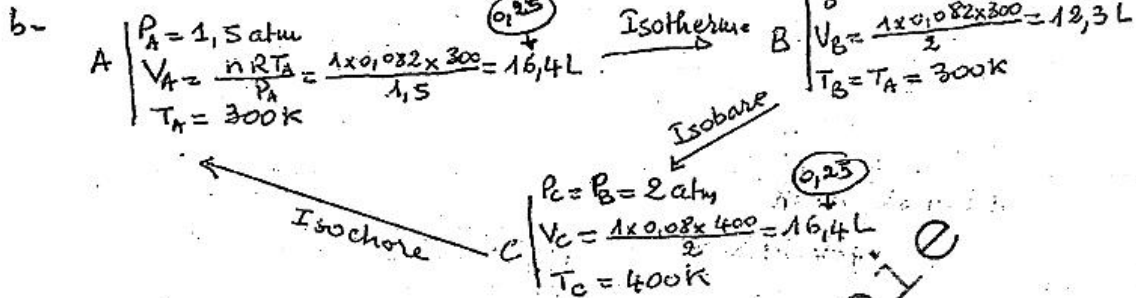 b-
A
P_A = 1,5 atm
V_A = nRT_A / P_A = 1x0,082x300 / 1,5 = 16,4L
T_A = 300K
0,25
Isotherme
B
V_B = 1x0,082x300 / 2 = 12,3L
T_B = T_A = 300K
Isobare
C
P_C = P_B = 2 atm
V_C = 1x0,08x400 / 2 = 16,4L
T_C = 400K
0,25
Isochore